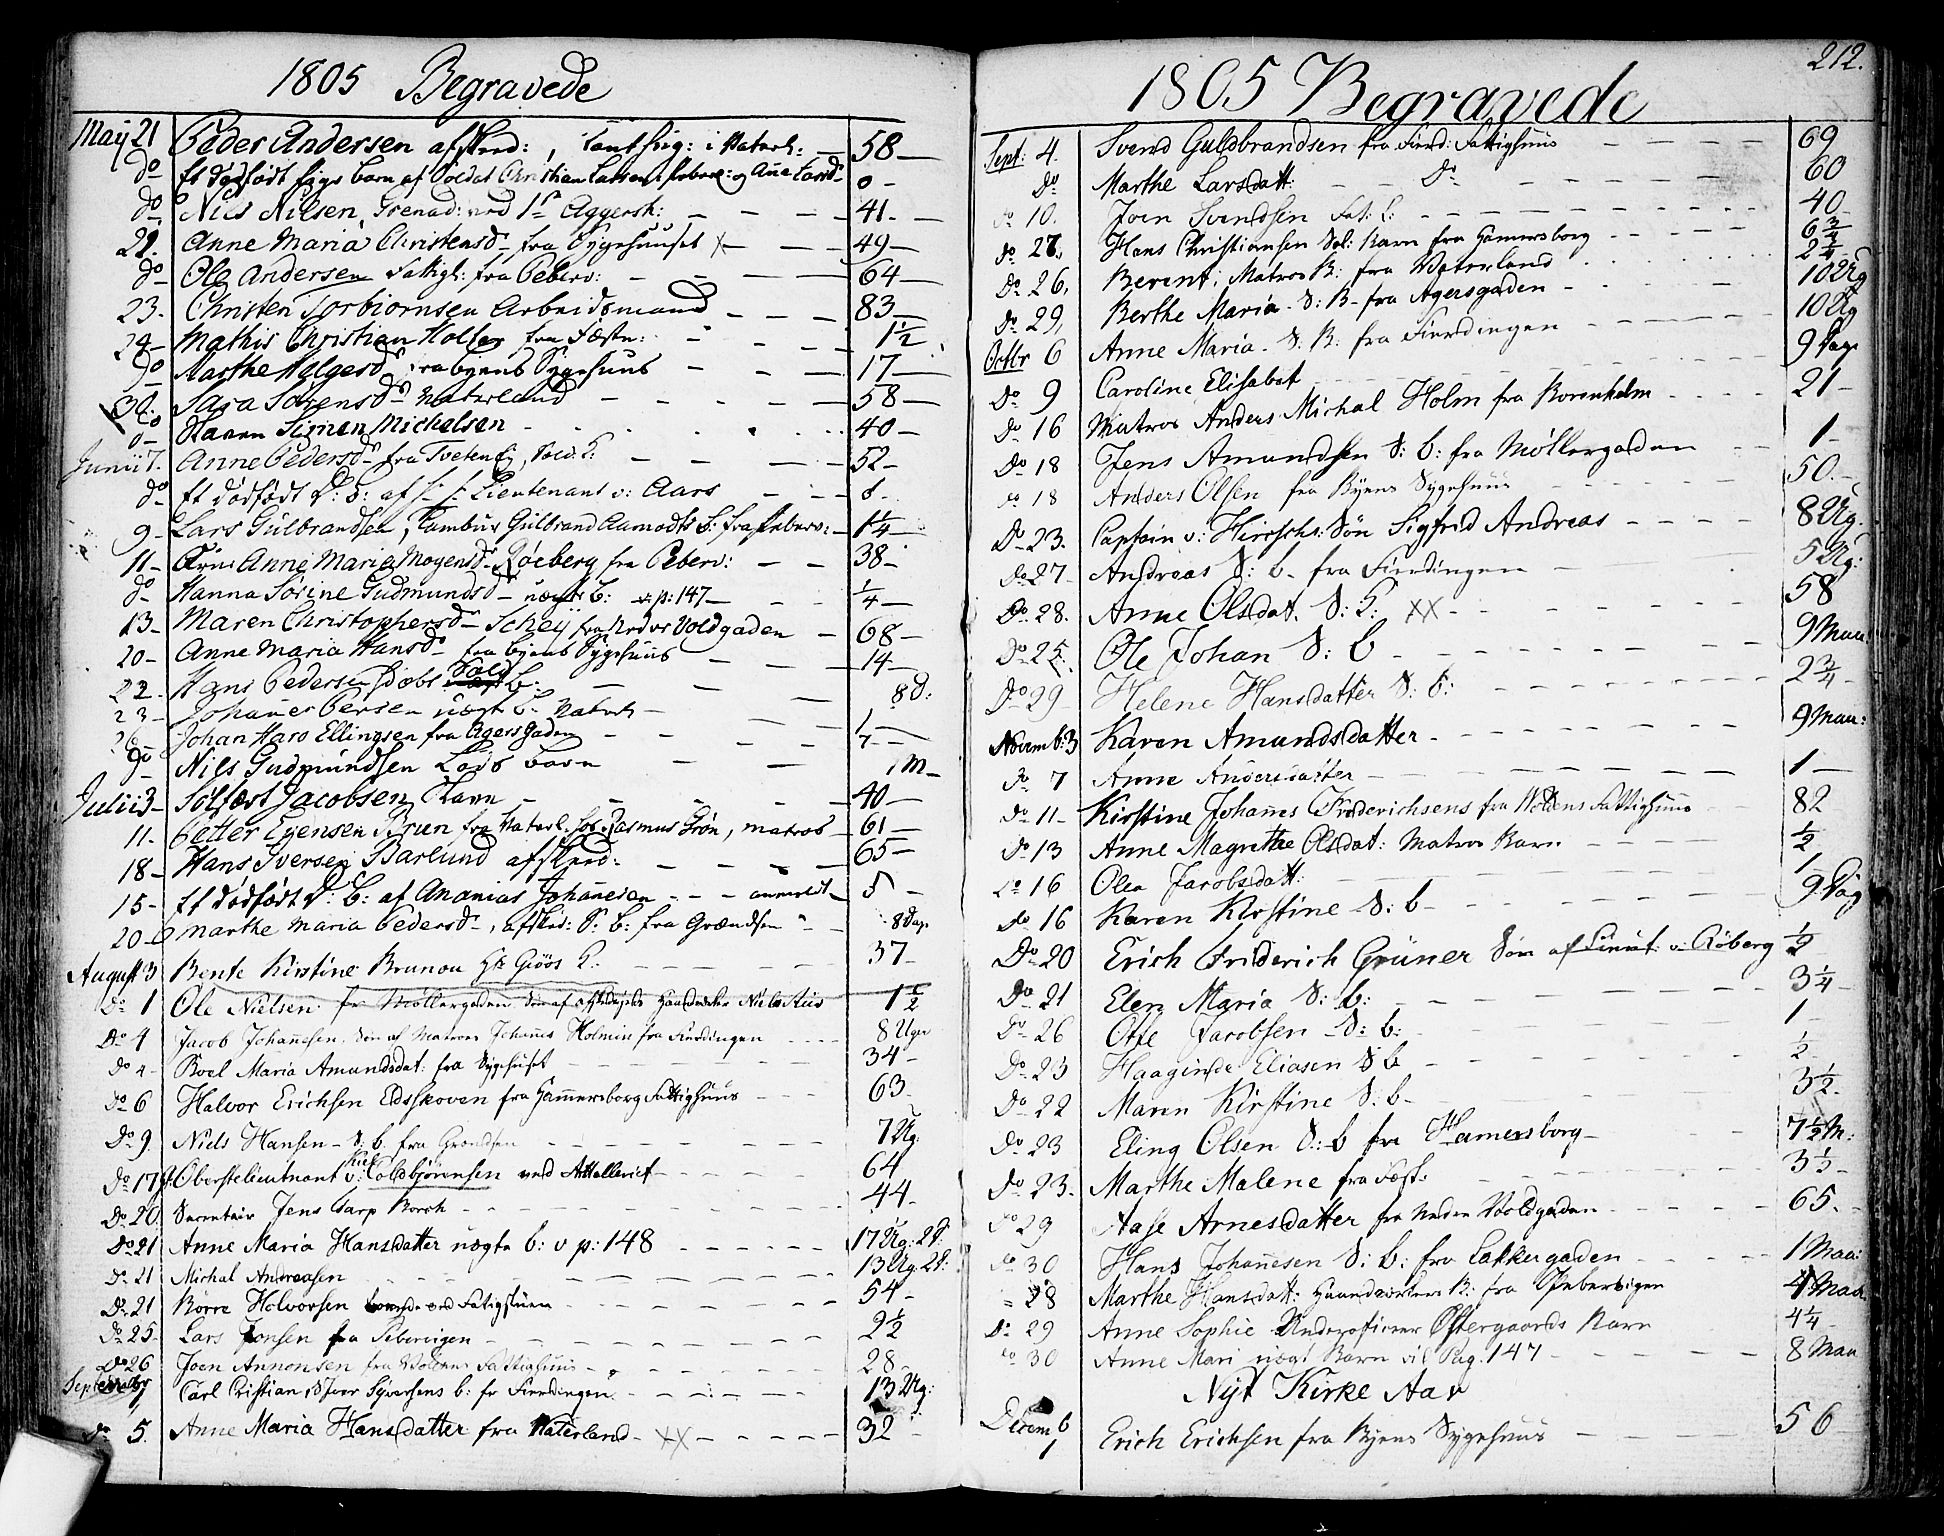 1805 Begravede
May 21 Peder Andersen afskeed: i Vaterl: 58
do Et dødfødt Pige barn af Soldat Christian Larsen Peberv: og Ane Larsd. 0
do Nils Nilsen, Grenad: ved 1ste Aggersh: 41
22. Anne Maria Christensd fra Sygehuuset x 49
do Ole Andersen Fattigl: fra Peberv: 64
23. Christen Torbiørnsen Arbeidsmand 83
24 Mathis Christian Holter fra Fæstn: 1½
do Marthe Helgesd fra byens Sygehuus 17
30. Sara Sørensd Vaterland 58
do Haven Simen Michelsen 40
Junii 7. Anne Pedersd fra Tveten Ej, Sold. E: 52
do Et dødfødt D: B: af Lieutenant v: Aars 0
9 Lars Gulbrandsen, Tambur Gulbrand Aamodts S: fra Peberv: 1¼
11 Anne Maria Mogensd Røeberg fra Peberv: 38
do Hanna Sørine Gudmundsd uægte b: v: p: 147 ¼
13 Maren Christophersd Scheÿ fra Nedre Voldgaden 68
20 Anne Maria Hansd fra byens Sygehuus 14
22 Hans Pedersen Sold b: 8 D:
23 Johannes Persen uægt b: Vaterl
26 Johan Haro Ellingsen fra Agers Gaden
do Nils Gudmundsen Løÿs barn 1 M
Julii 3 Sølfæst Jacobsen 40
11. Petter Egensen Brun fra Vaterl. hos Rasmus Grøn, matros 61
18 Hans Iversen Barlund afskeed: 65
15 Et dødfødt D: B: af Ananias Johannesen anmeldt
20 Marthe Maria Pedersd, afsked: S: B: fra Grændsen 8 Dage
August 3 Bente Kirstine Brunou Hr Giöös K: 37
Do 1 Ole Nielsen fr Møllergaden Søn af Haandværker 1½
Do 4 Jacob Johannesen. Søn af Matros Johannes Holmin fra Fierdingen 8 Uger
Do 4 Roel Maria Amundsdat: fra Sygehuset 34
Do 6 Halvor Erichsen Eidskoven fra Hammersborg Fattighuus 63
Do 9. Niels Hansen S: b. fra Grendsen 7 Ug:
Do 17 Oberstelieutnant v: Coldbjørensen ved Attelleriet 64
Do 20. Secretair Jens Carp Borch 44
Do 21 Anne Maria Hansdatter uægte b: v p: 148 17 Ug: 2 d:
Do 21 Michal Andreasen 13 Ug. 2 d:
Do 21 Børre Holvorsen ved Fatigstuen 54
Do 25. Lars Jonsen fra Pebervigen 2½
Do 26 Joen Annonsen fra Woldens Fattighuus 28
September 1 Carl Cristian Iver Siversens b: fr Fierdingen 13 Ug:
Do 5. Anne Maria Hansdatter fra Vaterland xx 32
212.
1805 Begravede
Sept: 4. Svend Guldbrandsen fra Fierd: Fattighuus 69
Do Marthe Larsdatt: Do 60
Do 10. Joen Svendsen Fat: L: 40
Do 27. Hans Christiansen Sol: Barn fra Hamersborg 6¾
Do 26. Berent. Matros B: fra Vaterland 2¼
Do 29, Berthe Maria. S: B fra Agersgaden 10 Ug
Octbr 6 Anne Maria. S: B: fra Fierdingen 10 Ug
Do 9 Caroline Elisabet 9 Dage
Do 16 Matros Anders Michal Holm fra Borenholm 21
Do 18 Jens Amundsen S: b: fra Møllergaden 1
Do 18 Anders Olsen fra Byens Sygehuus 50.
Do 23. Captain v: Hirschs: Søn Sigfrid Andreas 8 Ug.
Do 27 Andreas S: b fra Fierdingen 5 Ug:
Do 28. Anne Olsdat. S: E: xx 58
Do 25. Ole Johan S: b 9 Maan.
Do 29 Helene Hansdatter S: b: 2¾
Novemb: 3 Karen Amundsdatter 9 Maan:
Do 7 Anne Andersdatter 1
Do 11 Kirstine Johannes Friderichsens fra Woldens Fattighuus 82
Do 13 Anne Magrethe Olsdat: Matros Barn ½
Do 16 Olea Jacobsdatt: 1
Do 16 Karen Kirstine S: b 9 Dag
Do 20 Erich Friderich Grüner Søn af Lieut: v: Röberg ½
Do 21 Elen Maria S: b: 3¼
Do 26 Otte Jacobsen S: b: 1
Do 23 Haaginde Eliasen S b ½
Do 22 Maren Kirstine S: b 3½
Do 23 Eling Olsen S: b fra Hamersborg 7½ M:
Do 23. Marthe Malene fra Fæst: 3½
Do 29 Aase Arnesdatter fra Neden Woldgaden 65.
Do 30 Hans Johannesen S: b: fra Lakkergaden 1 Maa:
28 Marthe Hansdatt: Haandværkers B: fra Pebervigen 4 Maa
Do 29 Anne Sophie Underofficeer Østergaards Barn 4¼
Do 30 Anne Mari uægt Barn vil Pag. 147 8 Maa
Nyt Kirke Aar
Decem 6 1 Erich Erichsen fra Byens Sygehuus 56